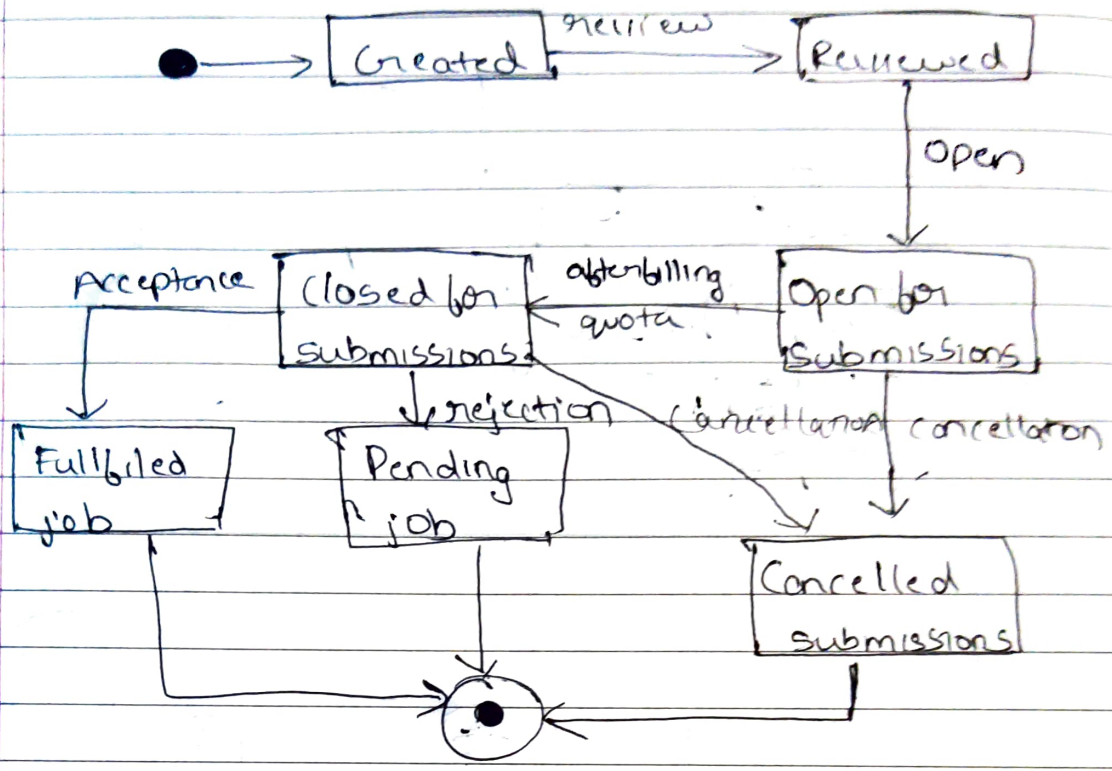 review
Created
Reviewed
Open
Acceptance
Closed for
submissions
after filling
quota
Open for
submissions
rejection
Cancellation
cancellation
Fullfiled
job
Pending
job
Cancelled
submissions